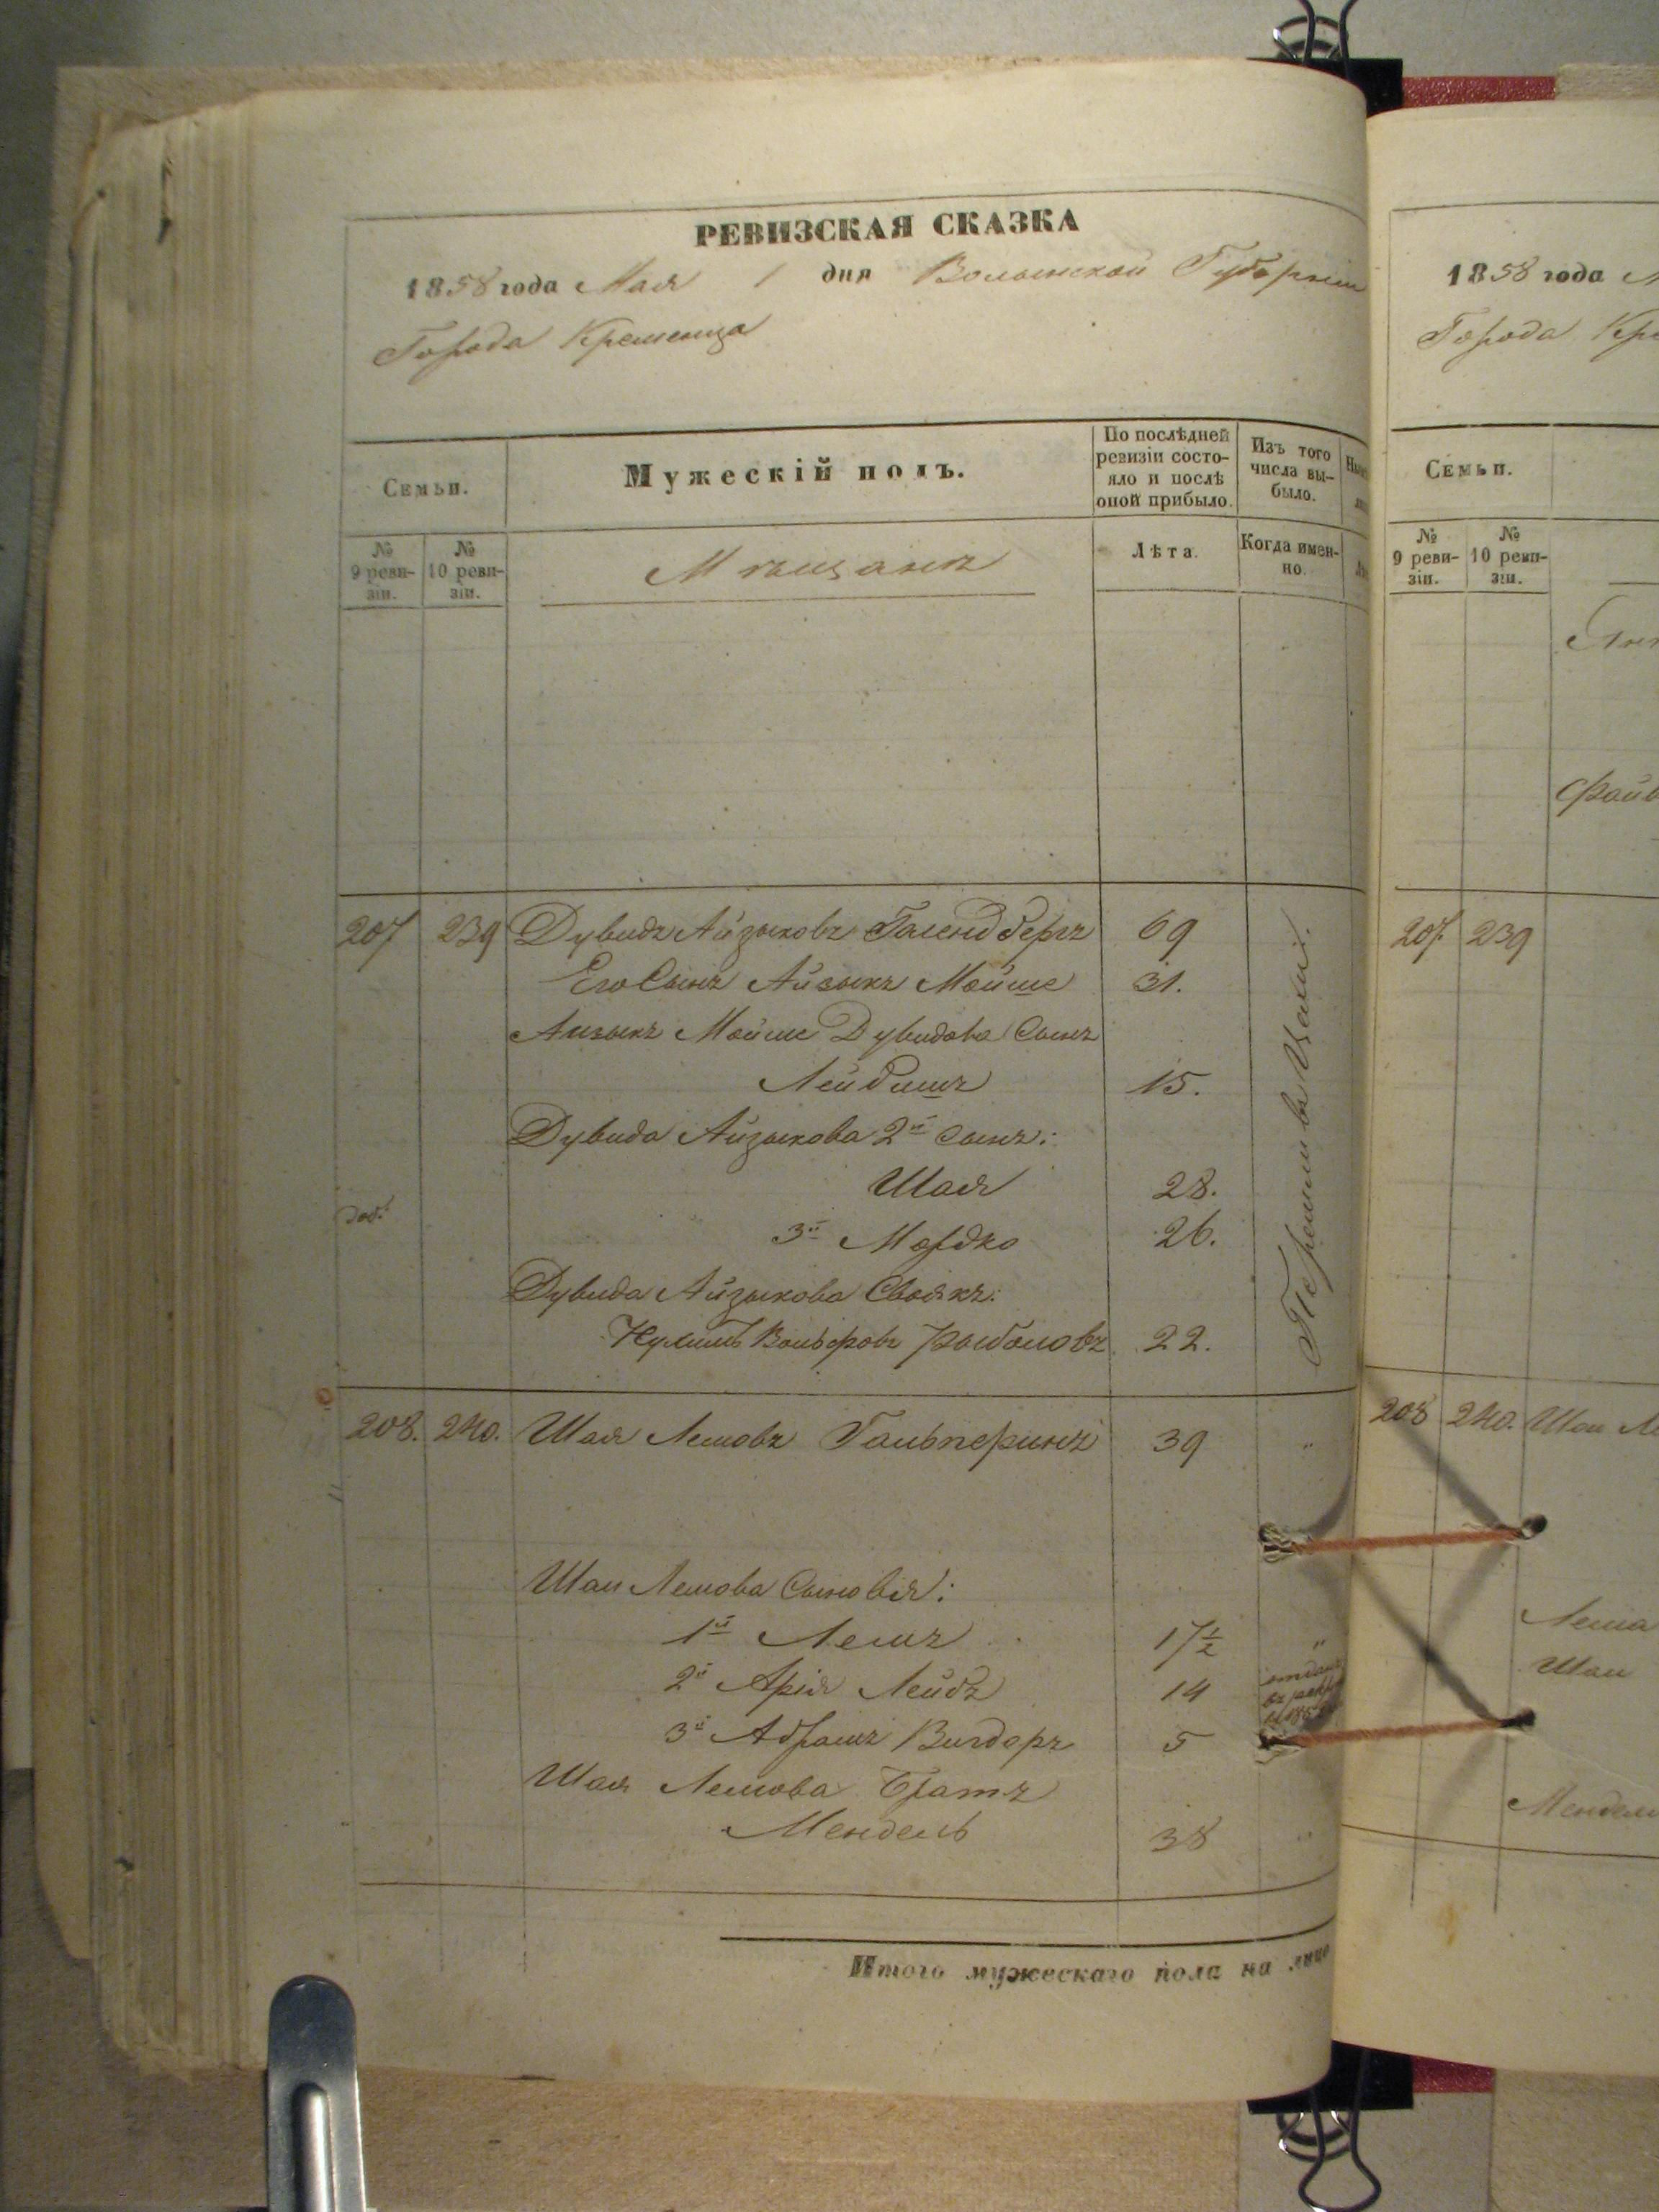 РЕВИЗСКАЯ СКАЗКА
1858 года Мая 1 дня Волынской Губерніи
Города Кременца
Семьи.
Мужескій полъ.
По послѣдней ревизіи состо-
яло и послѣ оной прибыло.
Изъ того числа вы-
было.
№ 9 реви-
зіи.
№ 10 реви-
зіи.
Мѣщанъ
Лѣта.
Когда имен-
но.
207 239 Дувидъ Айзыковъ 69
Его Сынъ Айзыкъ Мойше 31.
Айзыкъ Мойше Дувидова Сынъ
Лейбишъ 15.
Дувида Айзыкова 2й Сынъ:
Шая 28.
3й Мордко 26.
Дувида Айзыкова Своякъ:
Вольфовъ 22.
Перешли въ Цехи.
208. 240. Шая Лемовъ Гальперинъ 39 "
Шаи Лемова Сыновія:
1й Лемъ 17½ "
2й Арія Лейбъ 14
3й Абрамъ Вигдоръ 5
Шая Лемова Братъ
Мендель 38 "
Итого мужескаго пола на лицо
1858 года
Города
Семьи.
№ 9 реви-
зіи.
№ 10 реви-
зіи.
207. 239
208 240. Шаи
Лема
Шаи